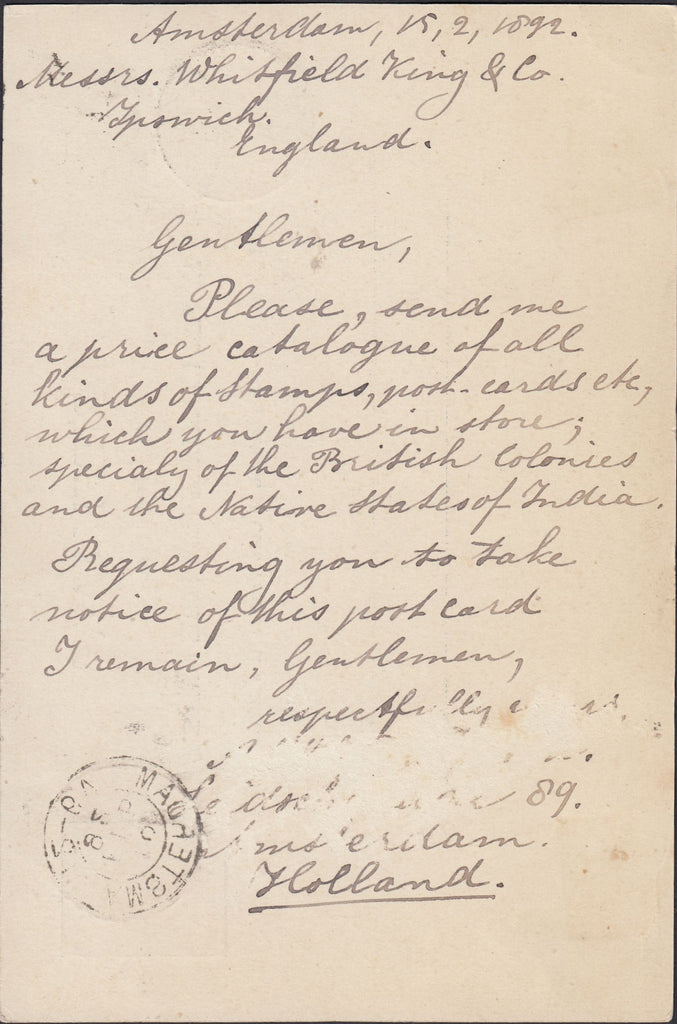 Amsterdam, 15, 2, 1892.
Messrs. Whitfield King & Co.
Ipswich.
England.
Gentlemen,
Please, send me
a price catalogue of all
kinds of stamps, post-cards etc,
which you have in store;
specialy of the British Colonies
and the Native States of India.
Requesting you to take
notice of this post card
I remain, Gentlemen,
respectfully
89.
Amsterdam.
Holland.